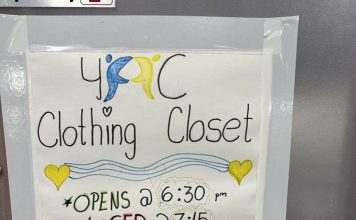 YAAC
Clothing Closet
*OPENS @ 6:30 pm
CLOSED @ 7:15